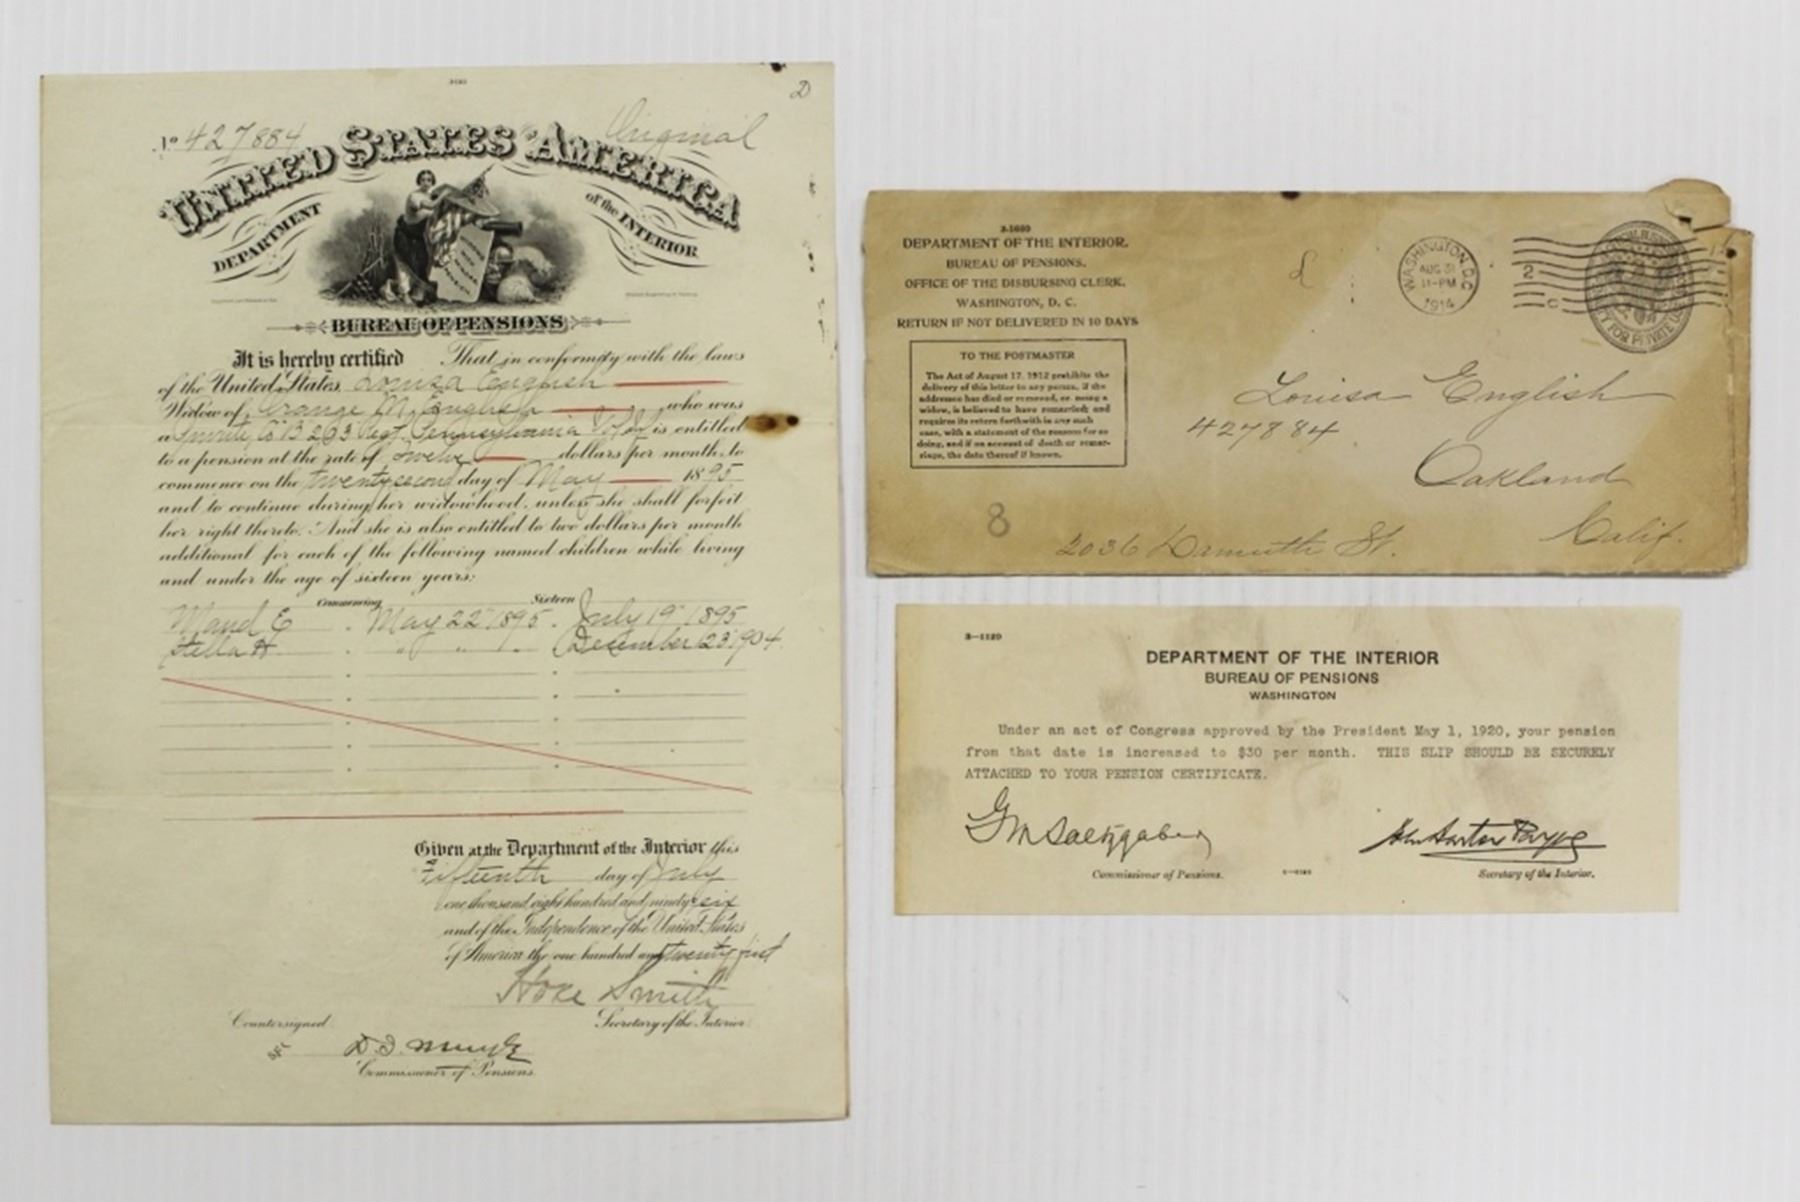 D
No 427884 Original
UNITED STATES OF AMERICA
DEPARTMENT of the INTERIOR
BUREAU OF PENSIONS
It is hereby certified That in conformity with the laws
of the United States Louisa English
Widow of Orange M. English who was
a Private Co B 203 Regt. Pennsylvania is entitled
to a pension at the rate of twelve dollars per month, to
commence on the twenty second day of May 1895
and to continue during her widowhood, unless she shall forfeit
her right thereto. And she is also entitled to two dollars per month
additional for each of the following named children while living
and under the age of sixteen years:
Commencing Sixteen
Maud E May 22" 1895. July 19" 1895
Stella H " " " December 23" 1904.
Given at the Department of the Interior this
Fifteenth day of July
one thousand eight hundred and ninety six
and of the Independence of the United States
of America the one hundred and twenty first
Hoke Smith
Secretary of the Interior
Countersigned
Commissioner of Pensions.
3-1689
DEPARTMENT OF THE INTERIOR.
BUREAU OF PENSIONS.
OFFICE OF THE DISBURSING CLERK.
WASHINGTON, D. C.
RETURN IF NOT DELIVERED IN 10 DAYS
TO THE POSTMASTER
The Act of August 17, 1912 prohibits the
delivery of this letter to any person, if the
addressee has died or removed, or, being a
widow, is believed to have remarried; and
requires its return forthwith in any such
case, with a statement of the reasons for so
doing, and if on account of death or remar-
riage, the date thereof if known.
WASHINGTON, D.C.
AUG 31
11-PM
1914
2
C
FOR PRIVATE
Louisa English
427884
Oakland
Calif.
8
2036 Damuth St.
3-1120
DEPARTMENT OF THE INTERIOR
BUREAU OF PENSIONS
WASHINGTON
Under an act of Congress approved by the President May 1, 1920, your pension
from that date is increased to $30 per month. THIS SLIP SHOULD BE SECURELY
ATTACHED TO YOUR PENSION CERTIFICATE.
G M Saltzgaber John Barton Payne
Commissioner of Pensions. Secretary of the Interior.